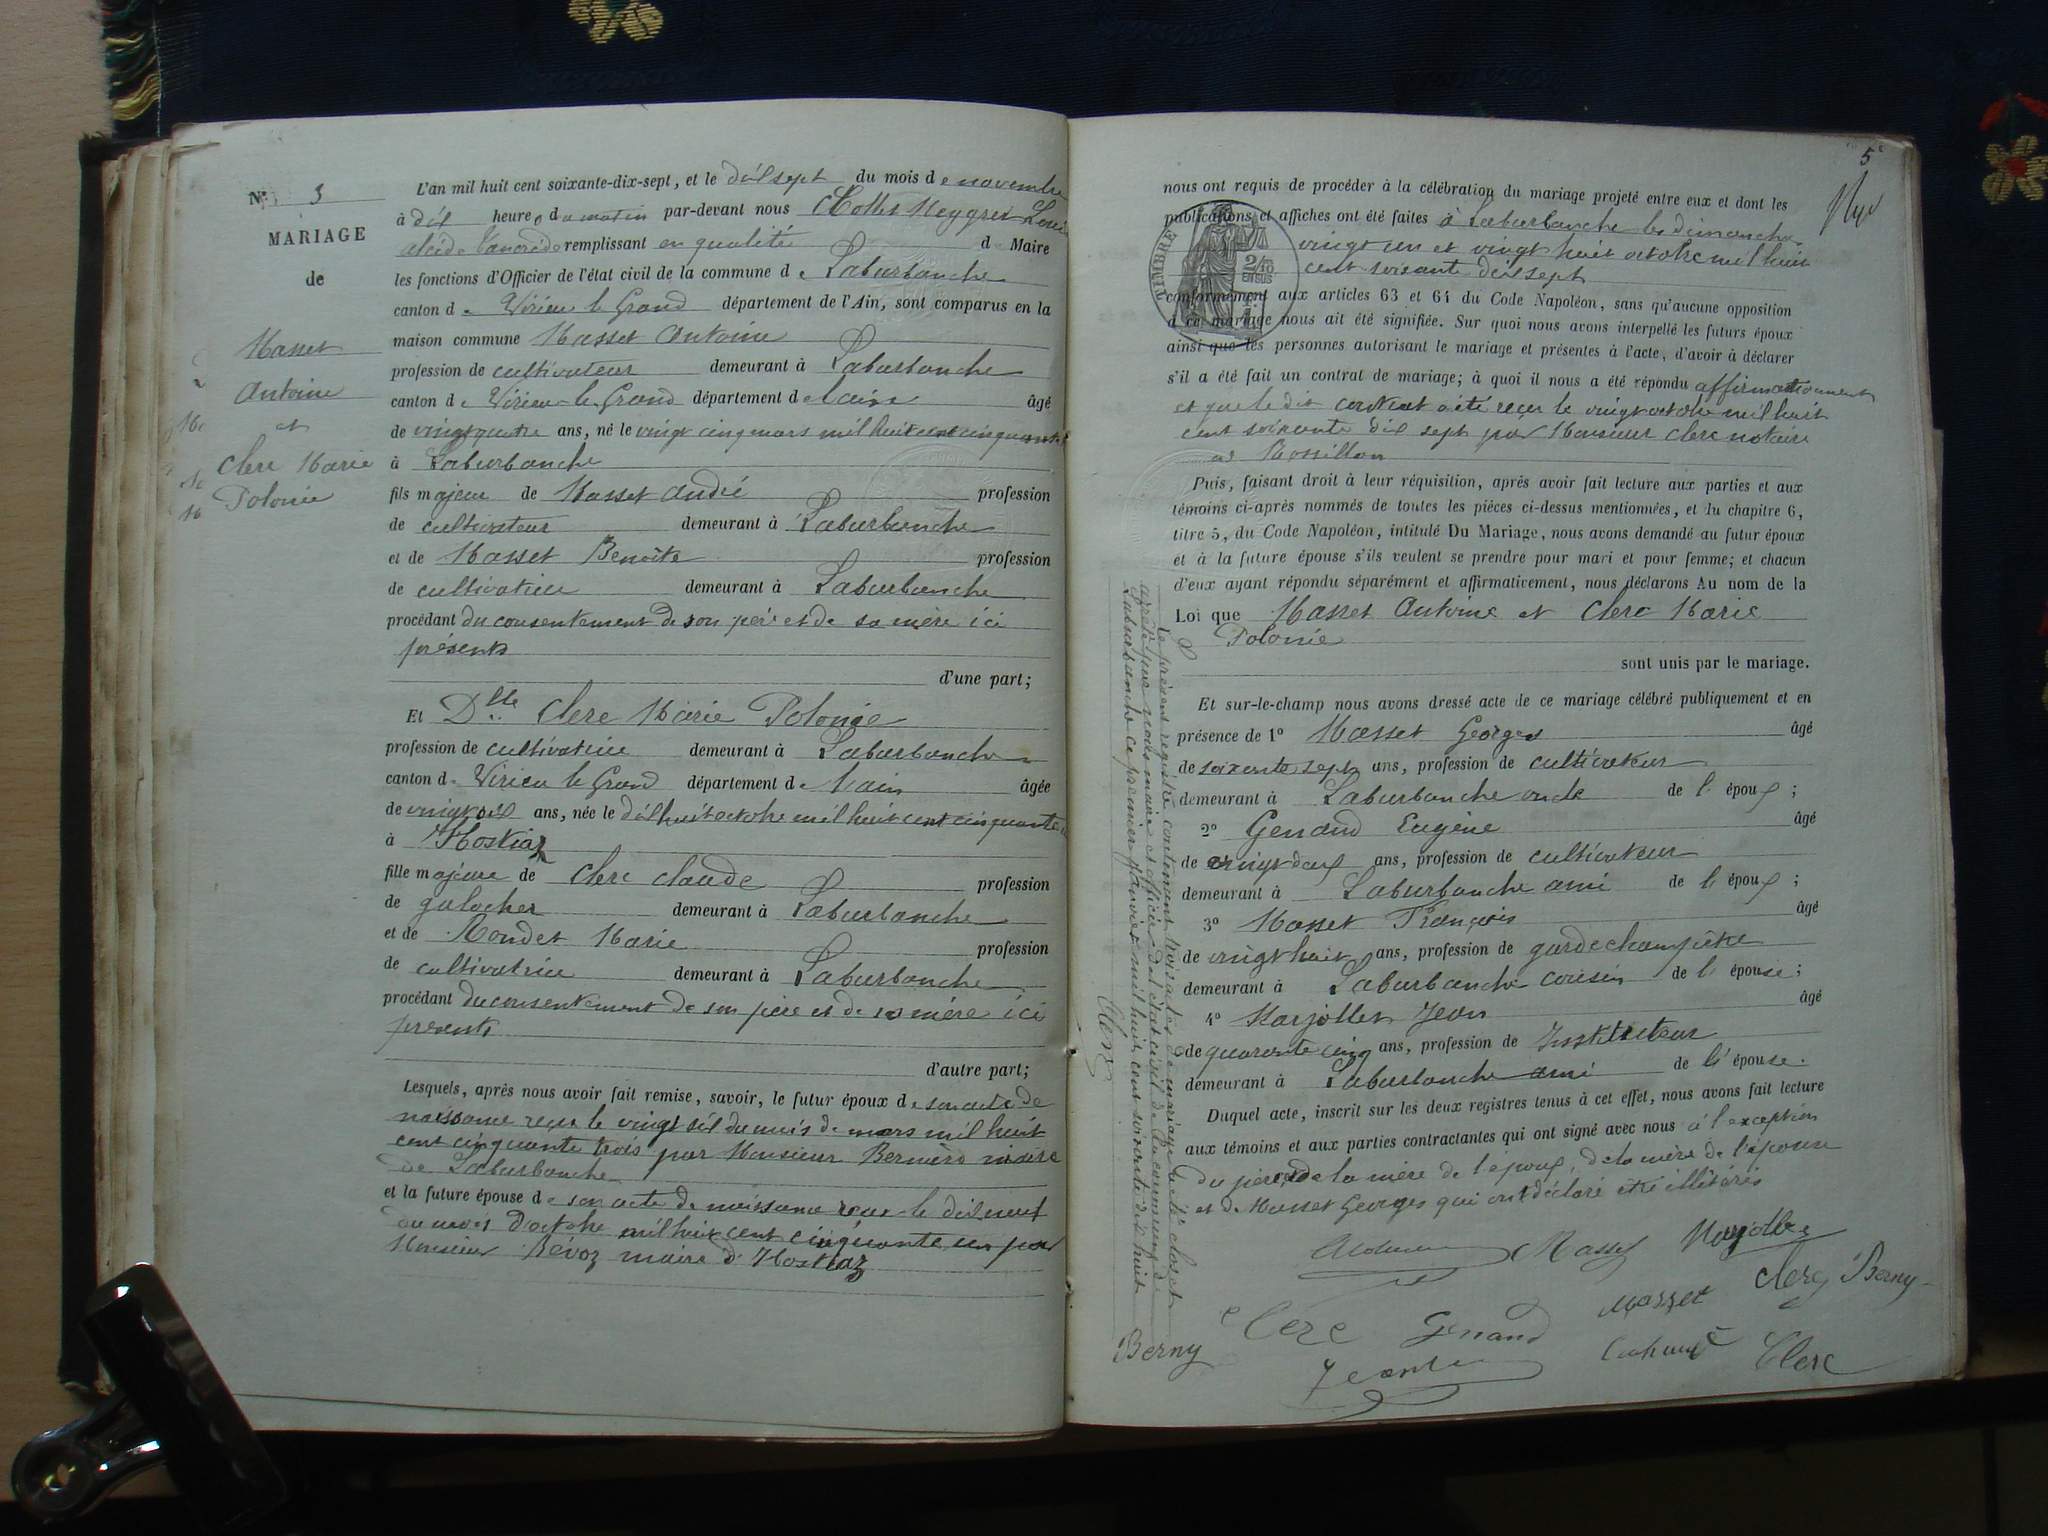 N° 3
MARIAGE
de
Masset
Antoine
et
Clerc Marie
Polonie
L'an mil huit cent soixante-dix-sept, et le dixsept du mois de novembre
à dix heures du matin par-devant nous
remplissant en qualité d Maire
les fonctions d'Officier de l'état civil de la commune de Laburbanche
canton de Virieu le Grand département de l'Ain, sont comparus en la
maison commune Masset Antoine
profession de cultivateur demeurant à Laburbanche
canton de Virieu-le-Grand département de l'ain âgé
de vingtquatre ans, né le vingt cinq mars mil huit cent cinquante
à Laburbanche
fils majeur de Masset André profession
de cultivateur demeurant à Laburbanche
et de Masset Benoîte profession
de cultivatrice demeurant à Laburbanche
procédant du consentement de son père et de sa mère ici
présents
d'une part;
Et Dlle Clerc Marie Polonie
profession de cultivatrice demeurant à Laburbanche
canton de Virieu le Grand département de l'ain âgée
de vingt six ans, née le dixhuit octobre mil huit cent cinquante
à Hostiaz
fille majeure de Clerc Claude profession
de galocher demeurant à Laburbanche
et de Rondet Marie profession
de cultivatrice demeurant à Laburbanche
procédant du consentement de son père et de sa mère ici
présents
d'autre part;
Lesquels, après nous avoir fait remise, savoir, le futur époux de son acte de
naissance reçu le vingt six du mois de mars mil huit
cent cinquante trois par Monsieur maire
de Laburbanche
et la future épouse de son acte de naissance reçu le dixneuf
du mois d'octobre mil huit cent cinquante un par
Monsieur Révoz maire d'Hostiaz
5
nous ont requis de procéder à la célébration du mariage projeté entre eux et dont les
publications et affiches ont été faites à Laburbanche les dimanche
vingt un et vingt huit octobre mil huit
cent soixante dix sept
TIMBRE
2/10
EN SUS
conformément aux articles 63 et 64 du Code Napoléon, sans qu'aucune opposition
à ce mariage nous ait été signifiée. Sur quoi nous avons interpellé les futurs époux
ainsi que les personnes autorisant le mariage et présentes à l'acte, d'avoir à déclarer
s'il a été fait un contrat de mariage; à quoi il nous a été répondu affirmativement
et que le dit contrat a été reçu le vingt octobre mil huit
cent soixante dix sept par Monsieur Clerc notaire
à Rossillon
Puis, faisant droit à leur réquisition, après avoir fait lecture aux parties et aux
témoins ci-après nommés de toutes les pièces ci-dessus mentionnées, et du chapitre 6,
titre 5, du Code Napoléon, intitulé Du Mariage, nous avons demandé au futur époux
et à la future épouse s'ils veulent se prendre pour mari et pour femme; et chacun
d'eux ayant répondu séparément et affirmativement, nous déclarons Au nom de la
Loi que Masset Antoine et Clerc Marie
Polonie
sont unis par le mariage.
Et sur-le-champ nous avons dressé acte de ce mariage célébré publiquement et en
présence de 1° Masset Georges âgé
de soixante sept ans, profession de cultivateur
demeurant à Laburbanche oncle de l'époux;
2° Genand Eugène âgé
de vingt deux ans, profession de cultivateur
demeurant à Laburbanche ami de l'époux;
3° Masset François âgé
de vingt huit ans, profession de garde champêtre
demeurant à Laburbanche cousin de l'épouse;
4° Marjollet Jean âgé
de quarante cinq ans, profession de Instituteur
demeurant à Laburbanche ami de l'épouse.
Duquel acte, inscrit sur les deux registres tenus à cet effet, nous avons fait lecture
aux témoins et aux parties contractantes qui ont signé avec nous à l'exception
du père et de la mère de l'époux, de la mère de l'épouse
et de Masset Georges qui ont déclaré être illétérés
Masset Marjollet
Clerc Genand Masset Clerc Berny
Clerc
Le présent registre contenant trois actes de mariage a été clos et
arrêté par nous maire et officier de l'état civil de la commune de
Laburbanche ce premier janvier mil huit cent soixante dix huit
Berny